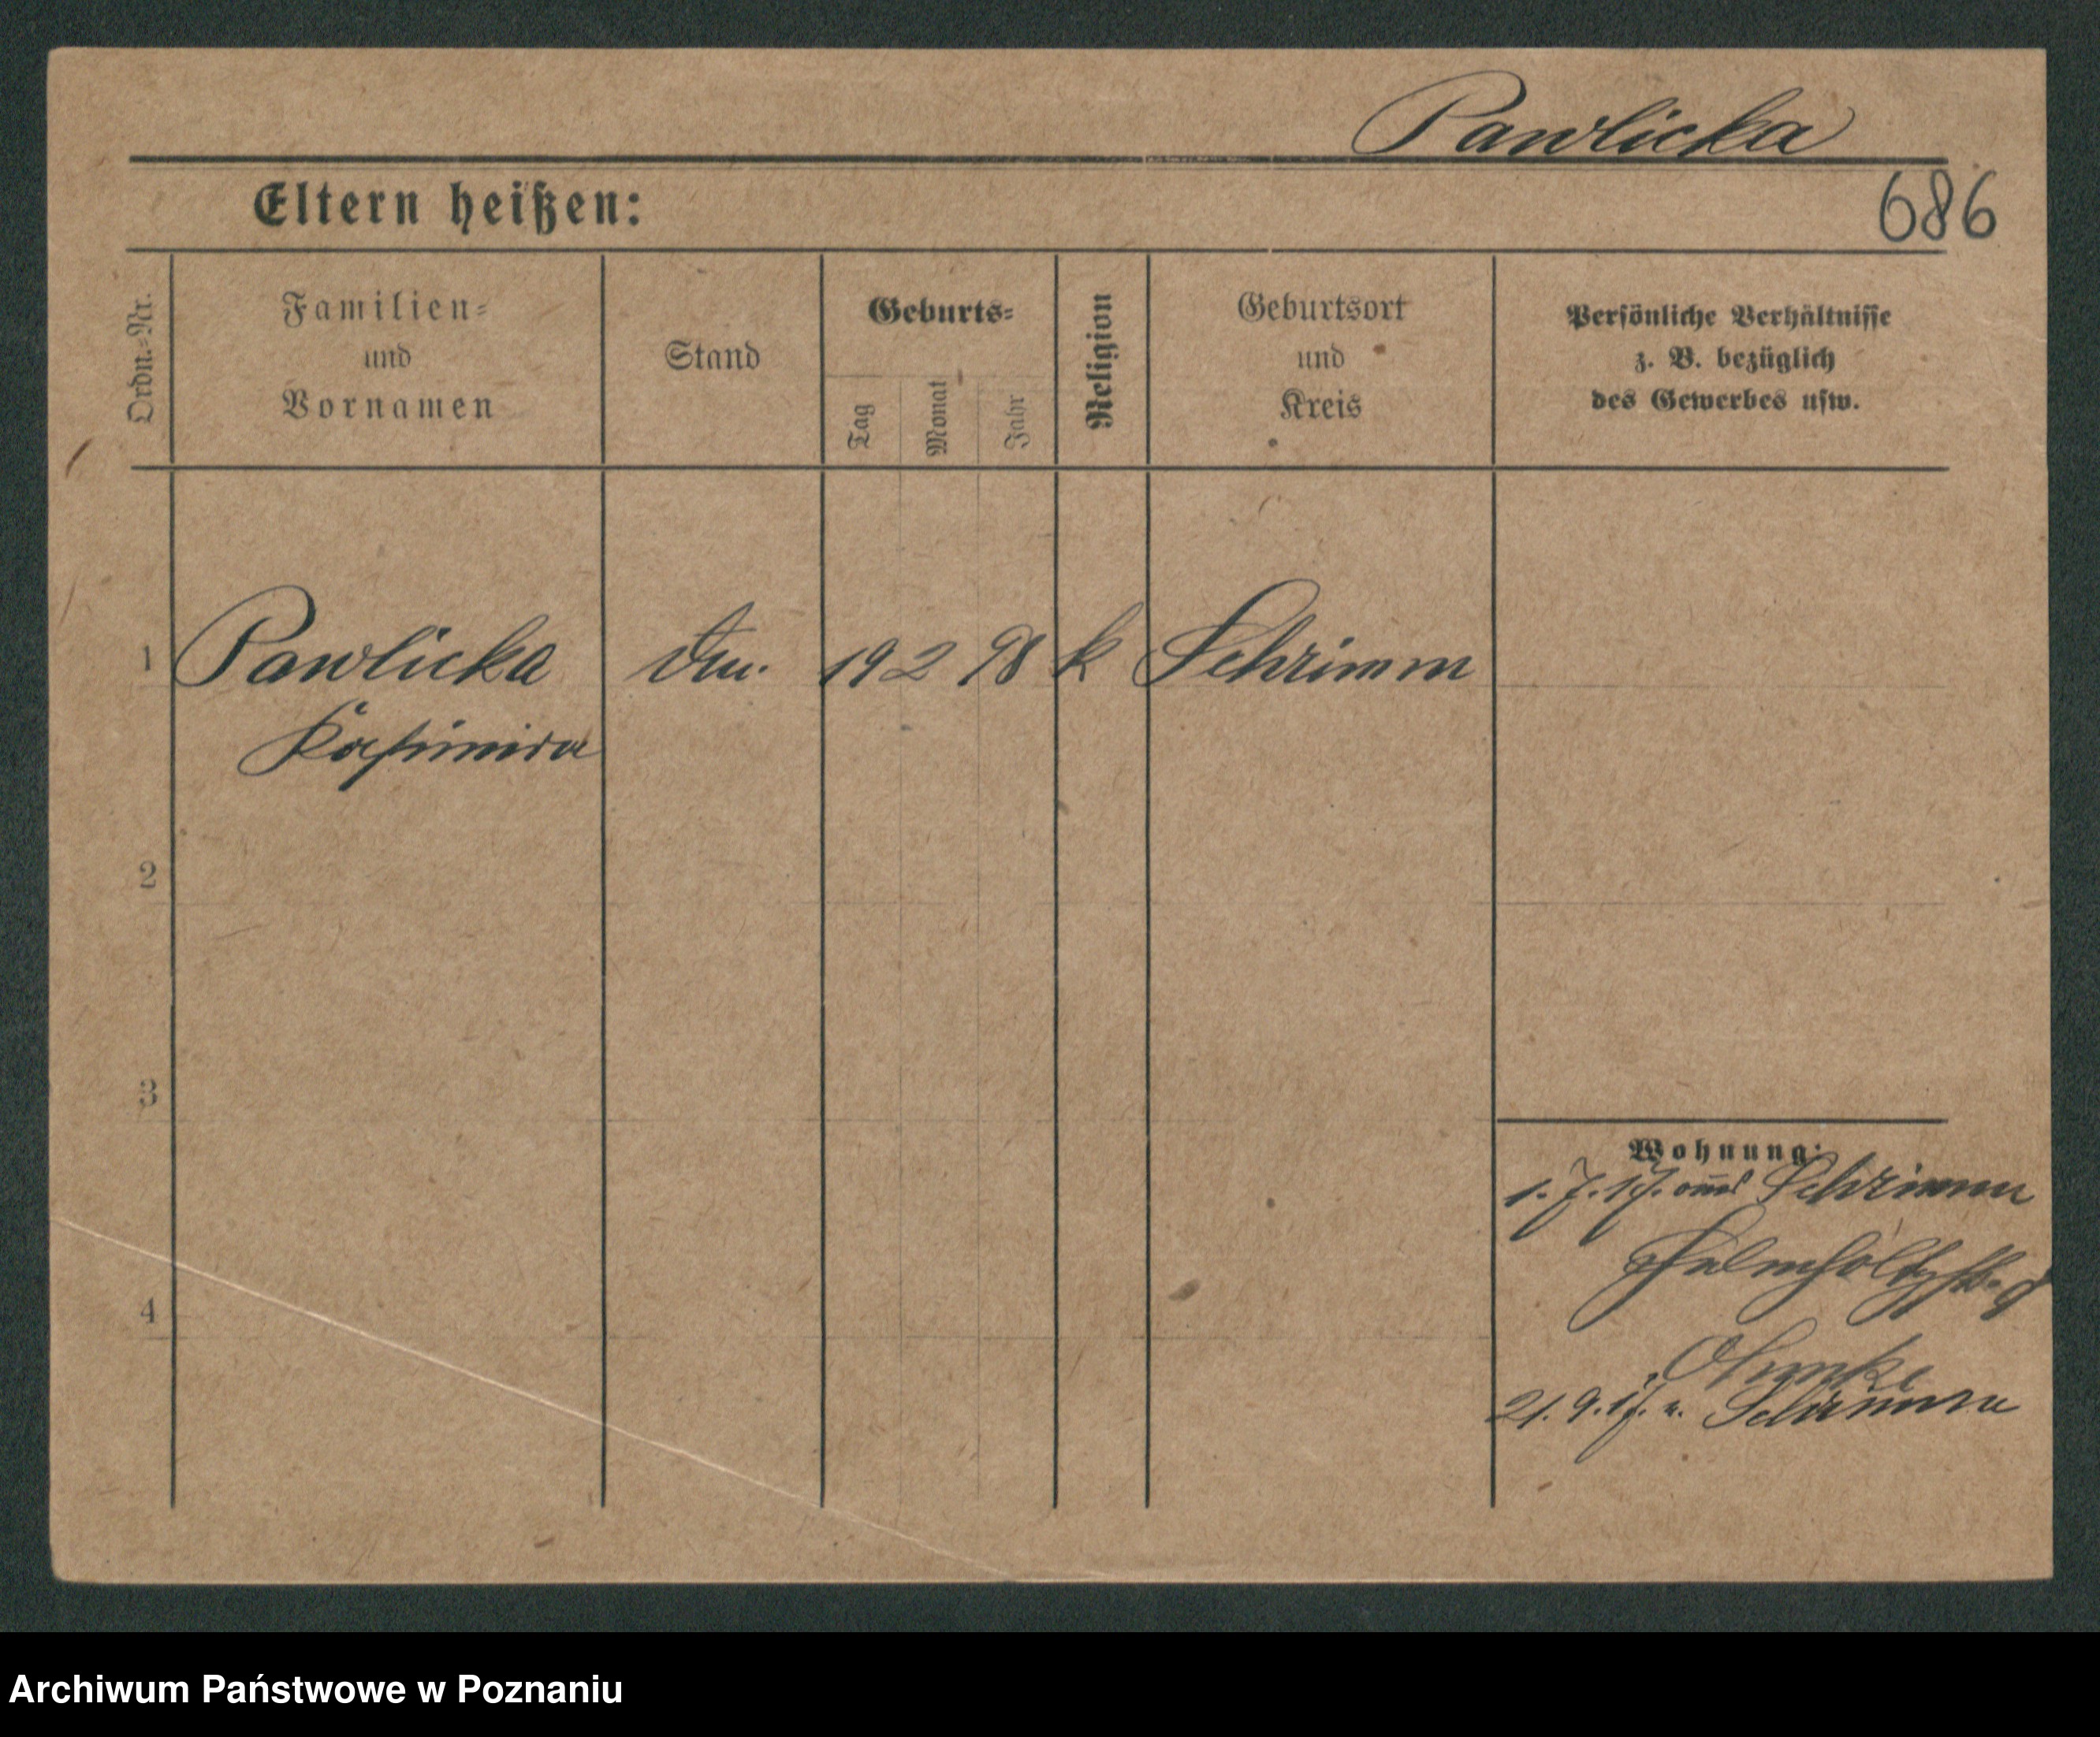 Pawlicka
Eltern heißen:
686
Ordn.=Nr.
Familien=
und
Vornamen
Stand
Geburts=
Tag
Monat
Jahr
Religion
Geburtsort
und
Kreis
Persönliche Verhältnisse
z. B. bezüglich
des Gewerbes usw.
1 Pawlicka 19 2 98 k Schrimm
Kasimira
2
3
4
Wohnung:
1. 7. 17. aus Schrimm
21. 9. 17. n. Schrimm
Archiwum Państwowe w Poznaniu